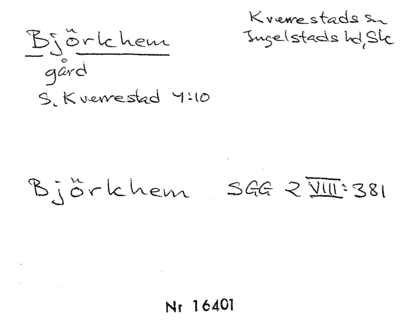 Björkhem
gård
S. Kverrestad 4:10
Kverrestads sn
Ingelstads hd, Sk
Björkhem SGG 2 VIII: 381
Nr 16401